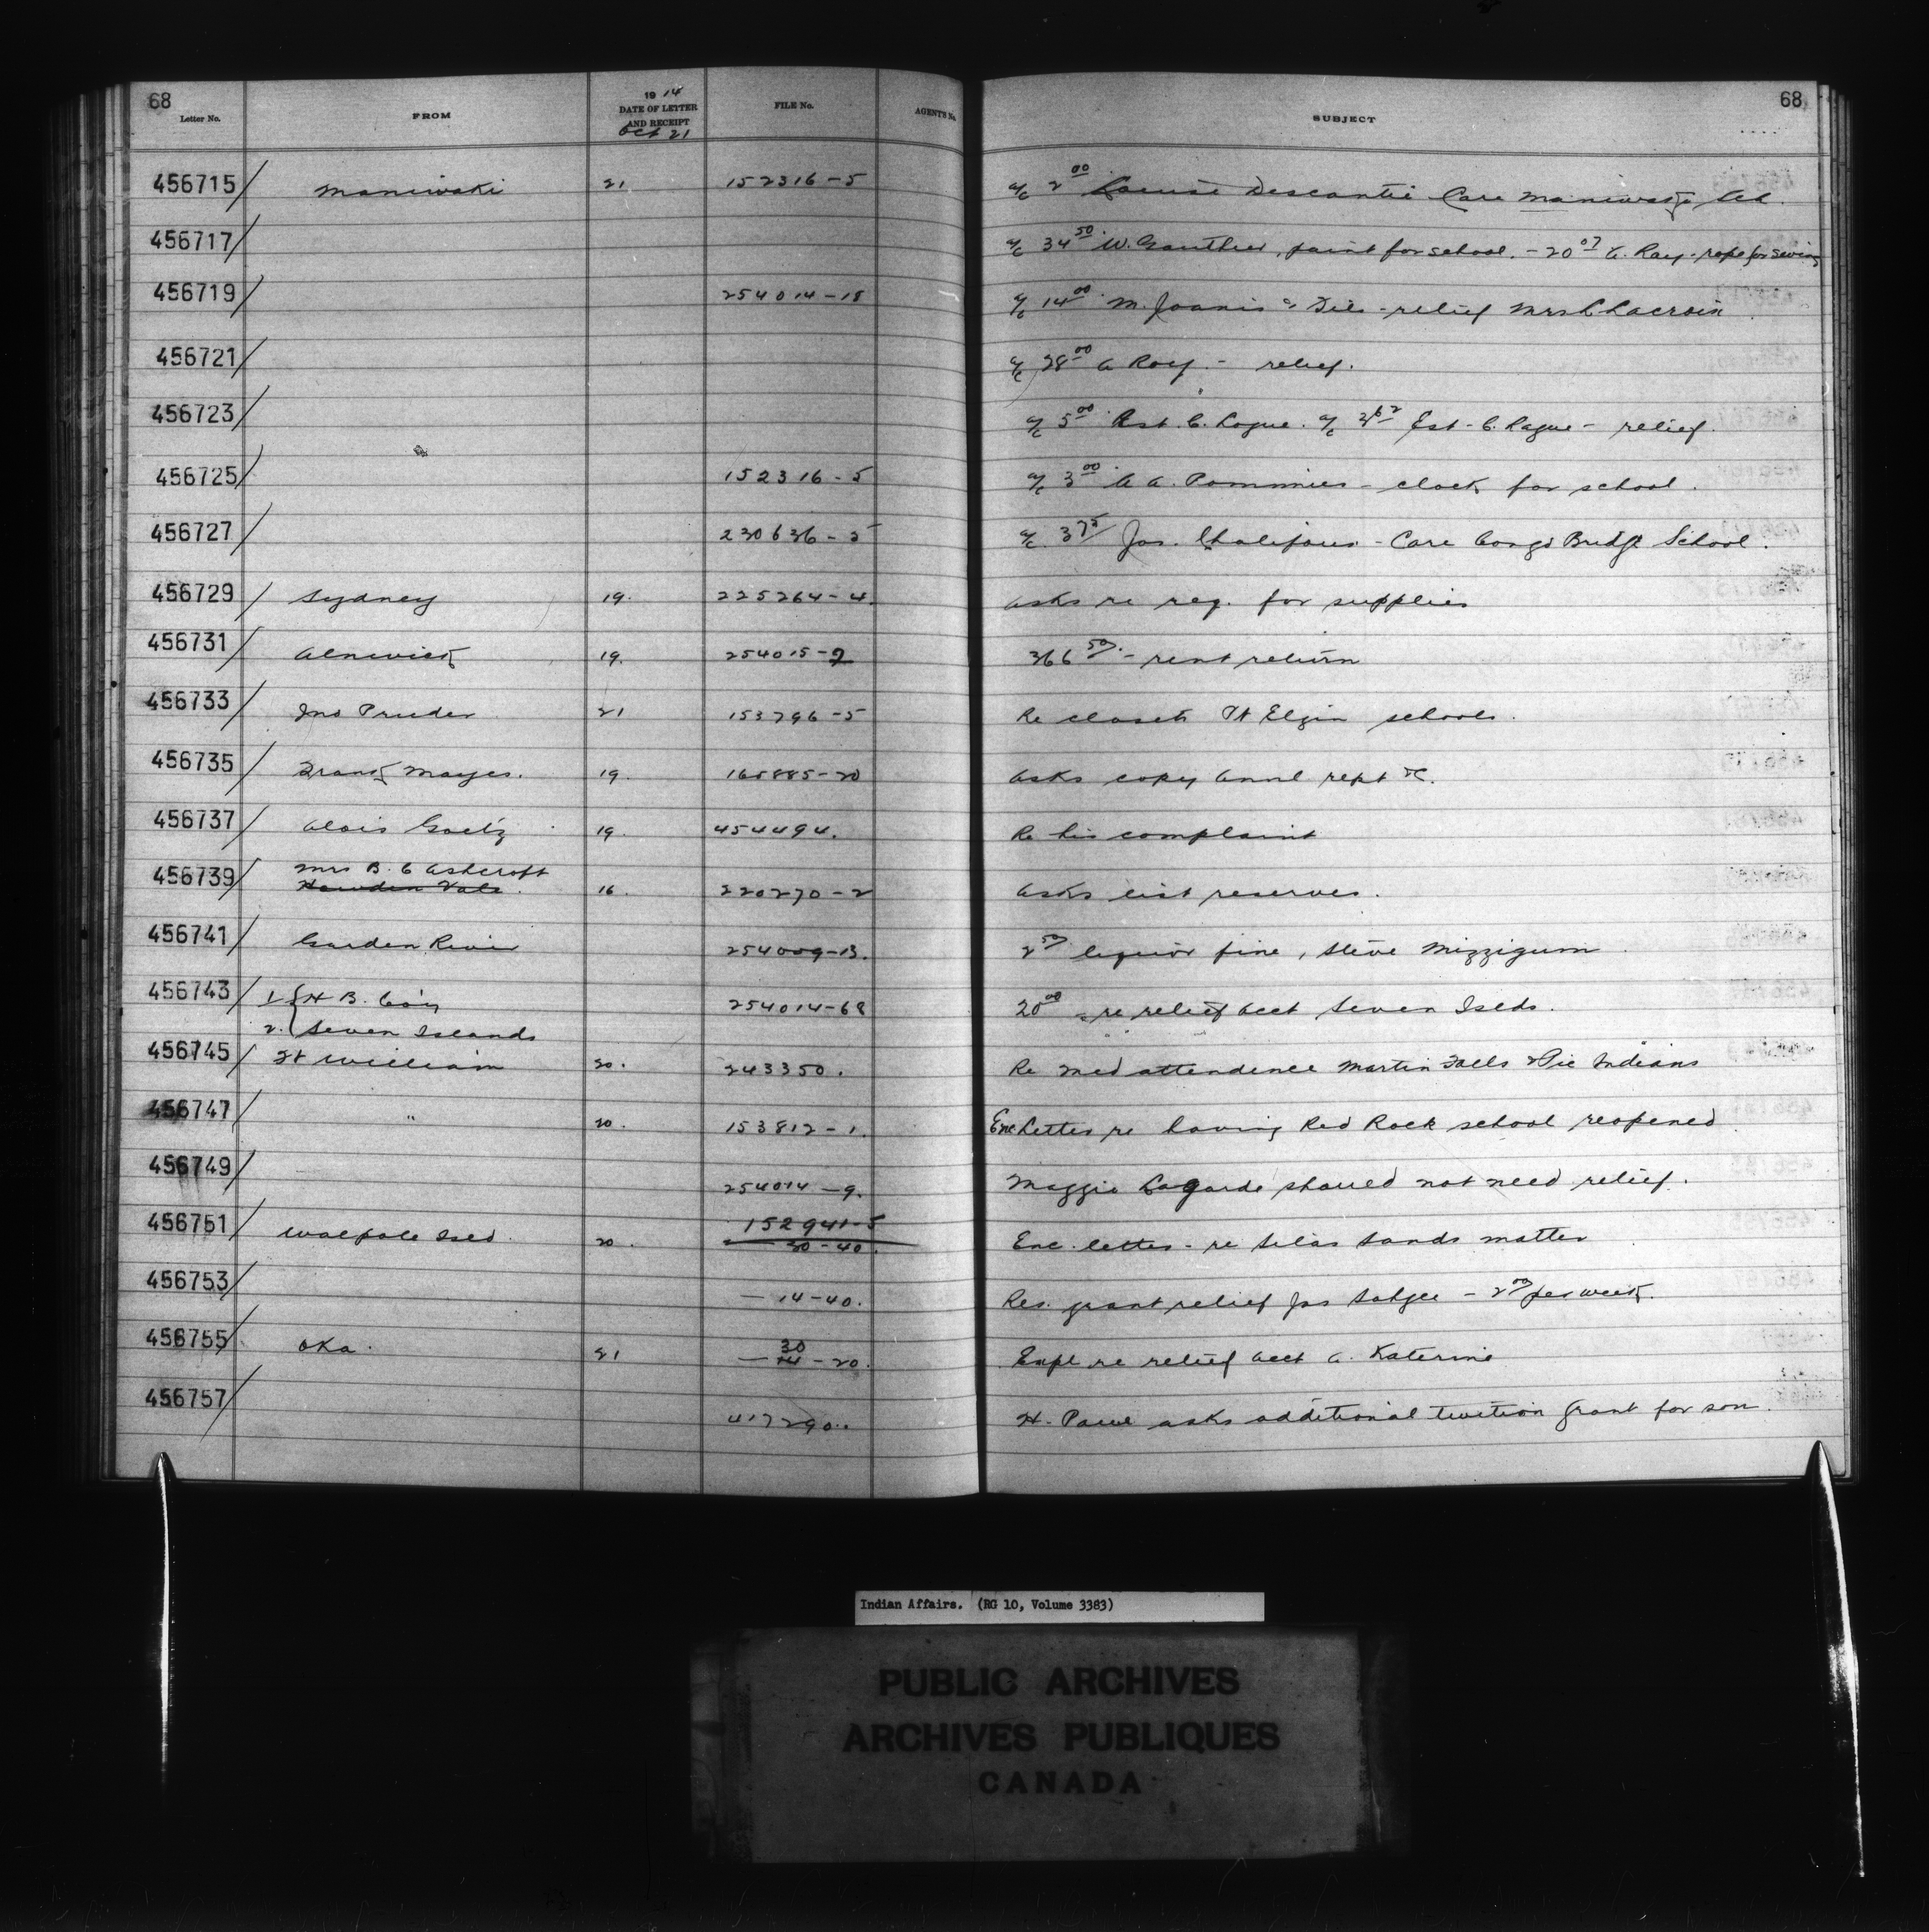 68
Letter No. FROM 1914 DATE OF LETTER AND RECEIPT Oct 21 FILE No. AGENT'S No. SUBJECT 68
456715 Maniwaki 21 152316-5 a/c 2 00 Louise Descantie Care Maniwaki Sch.
456717 a/c 34 50 W. Gauthier, paint for school. - 20 07 A. Roy - rope for
456719 254014-18 a/c 14 00 M. Joanis - relief Mrs L Lacroix
456721 a/c 28 00 A Roy. - relief.
456723 a/c 5 00 Est. C. Logue. a/c Est - C. Logue - relief.
456725 152316-5 a/c 3 00 A A. Pommier - clock for school.
456727 230636-5 a/c 3 75 Jas. Chalifoux - Care Congo Bridge School.
456729 Sydney 19. 225264-4. Asks re req. for supplies
456731 Alnwick 19. 254015-2 366 50 - rent return
456733 Jno Pruder 21 153796-5 Re closets Pt Elgin schools.
456735 Frank Mayes. 19. 165885-20 Asks copy Annl rept &c.
456737 Alois Goetz 19. 454494. Re his complaint
456739 Mrs B. C Ashcroft
Howden Vale. 16. 220270-2 Asks list reserves.
456741 Garden River 254009-13. 2 50 liquor fine, Steve Mizzigum
456743 1. H B. Coy 254014-68 20 00 - re relief acct Seven Islds.
2. Seven Islands
456745 Ft William 20. 243350. Re Med attendence Martin Falls & Pic Indians
456747 " 20. 153812-1. Enc letter re having Red Rock school reopened
456749 254014-9. Maggie Lagarde should not need relief.
456751 Walpole Isld. 20. 152941-5
30-40. Enc. letter - re Silas Sands matter
456753 — 14-40. Res. grant relief Jas - 2 00 per week.
456755 Oka. 21 30
— 14-20. Expl re relief acct A. Katerine
456757 417290. H. asks additional tuition grant for son.
Indian Affairs. (RG 10, Volume 3383)
PUBLIC ARCHIVES
ARCHIVES PUBLIQUES
CANADA